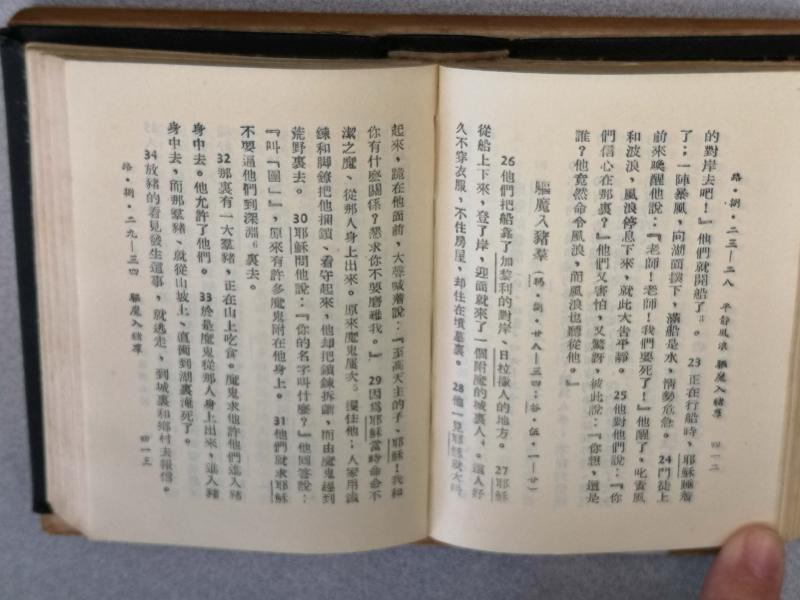 路・捌・二三—二八 平靜風浪 驅魔入豬羣 四一二
的對岸去吧！』他們就開船了。 23正在行船時，耶穌睡着
了；一陣暴風，向湖面撲下，滿船是水，情勢危急。 24門徒上
前來喚醒他說：『老師！老師！我們要死了！』他醒了，叱責風
和波浪，風浪停息下來，就此大告平靜。 25他對他們說：『你
們信心在那裏？』他們又害怕，又驚訝，彼此說：『你想，這是
誰？他竟然命令風浪，而風浪也聽從他。』
驅魔入豬羣（瑪・捌・廿八—三四；谷・伍・一—廿）
26他們把船靠了加黎利的對岸、日拉撒人的地方。 27耶穌
從船上下來，登了岸，迎面就來了一個附魔的城裏人，這人好
久不穿衣服，不住房屋，却住在墳墓裏。 28他一見耶穌就大喊
起來，跪在他面前，大聲喊着說：『至高天主的子，耶穌！我和
你有什麼關係？懇求你不要磨難我。』 29因爲耶穌當時命命不
潔之魔、從那人身上出來。原來魔鬼屢次、攫住他；人家用鐵
鍊和脚鐐把他捆鎖、看守起來，他却把鎖鍊拆斷，而由魔鬼趕到
荒野裏去。 30耶穌問他說：『你的名字叫什麼？』他回答說：
『叫「團」』，原來有許多魔鬼附在他身上。 31他們就求耶穌
不要逼他們到深淵6裏去。
32那裏有一大羣豬，正在山上吃食。魔鬼求他許他們進入豬
身中去。他允許了他們。 33於是魔鬼從那人身上出來，進入豬
身中去，而那羣豬、就從山坡上、直衝到湖裏淹死了。
34放豬的看見發生這事，就逃走，到城裏和鄉村去報信。
路・捌・二九—三四 驅魔入豬羣 四一三